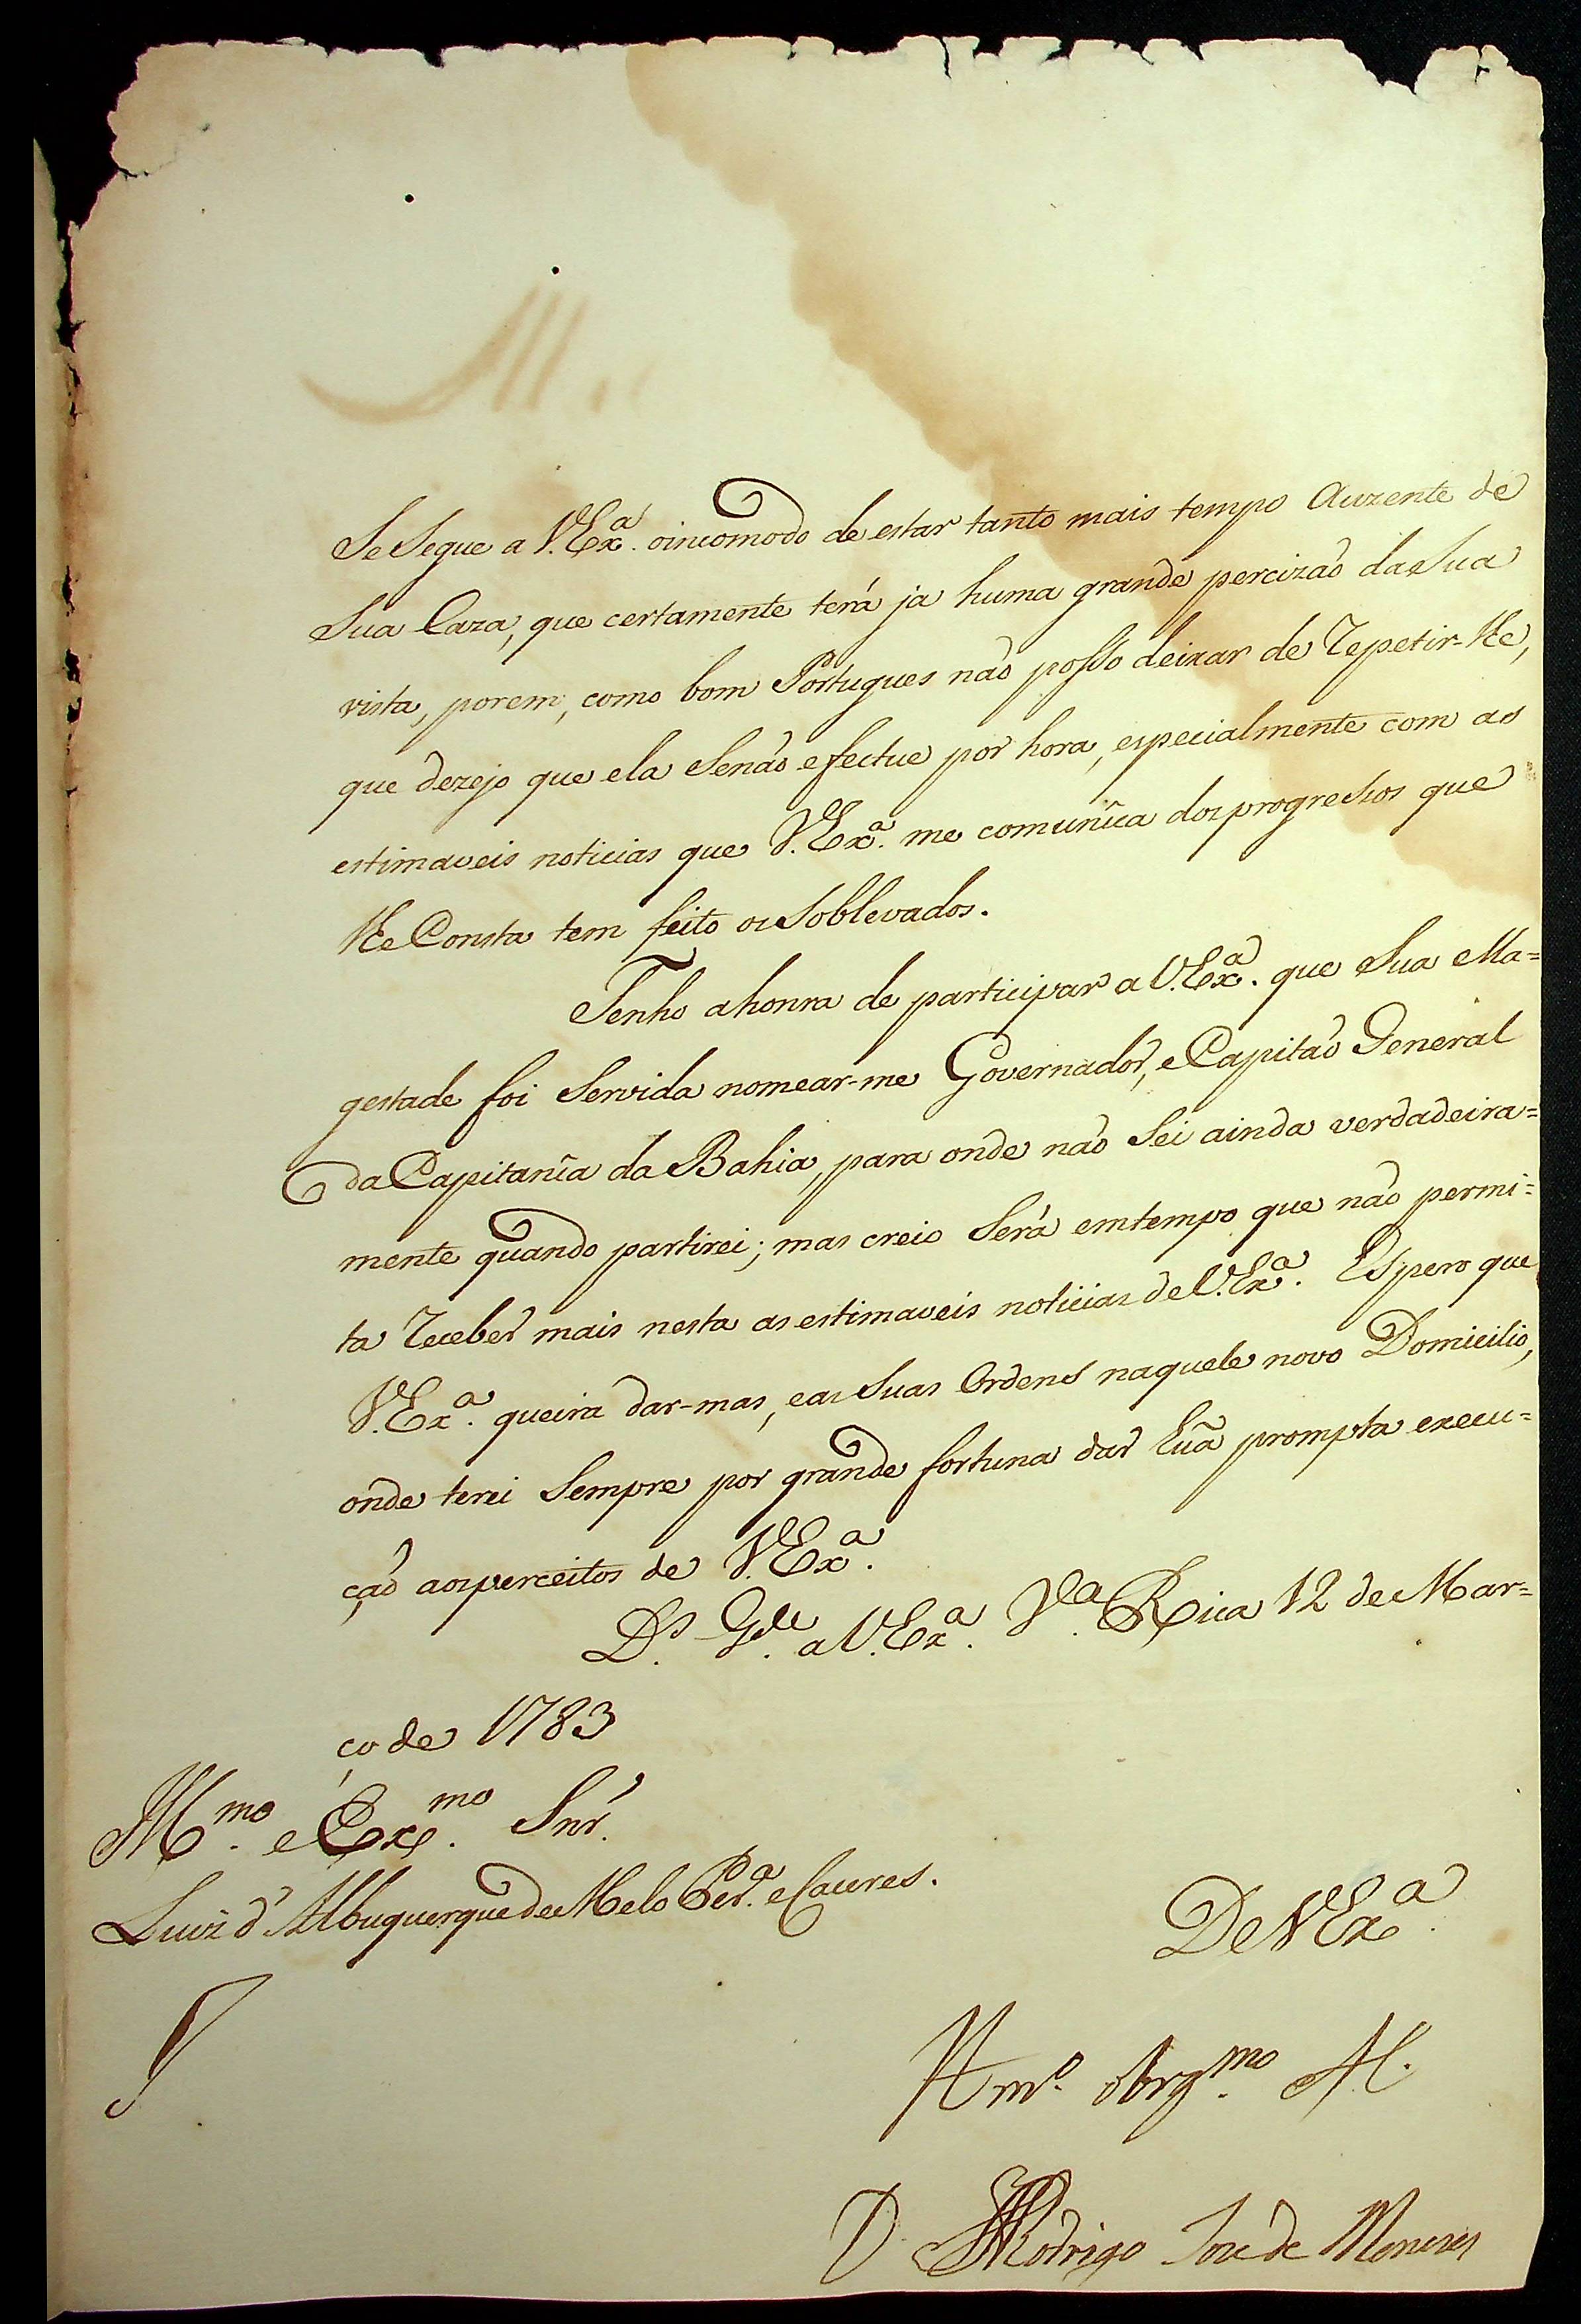 Se Segue a V.Exª. oincomodo de estar tanto mais tempo Auzente de
Sua Caza, que certamente terá ja huma grande percizaõ da Sua
vista, porem, como bom Portugues naõ posso deixar de Repetir-lhe,
que dezejo que ela Senaõ efectue por hora, especialmente com as
estimaveis noticias que V.Exª. me comunîca dos progressos que
lhe Consta tem feito os Soblevados.
Tenho ahonra de participar a V.Exª. que Sua Ma=
gestade foi Servida nomear-me Governador, e Capitaõ General
da Capitanîa da Bahia, para onde naõ Sei ainda verdadeira=
mente quando partirei; mas creio Será emtempo que naõ permi=
ta Receber mais nesta as estimaveis noticias de V.Exª. Espero que
V.Exª. queira dar-mas, e as Suas Ordens naquele novo Domicilio,
onde terei Sempre por grande fortuna dar huã prompta execu=
çaõ aos perceitos de V.Exª.
Dˢ. Gᵈᵉ. a V.Exª. Vª. Rica 12 de Mar=
ço de 1783
Illᵐᵒ. e Exᵐᵒ. Snr.
Luiz d'Albuquerque de Melo Perª. e Caceres.
De V Exª.
Amº. obrgᵐᵒ.
D Rodrigo Joze de Menezes